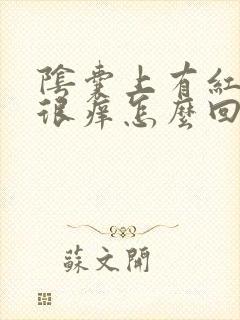 陰囊上有紅
很癢怎麼回
蘇文開